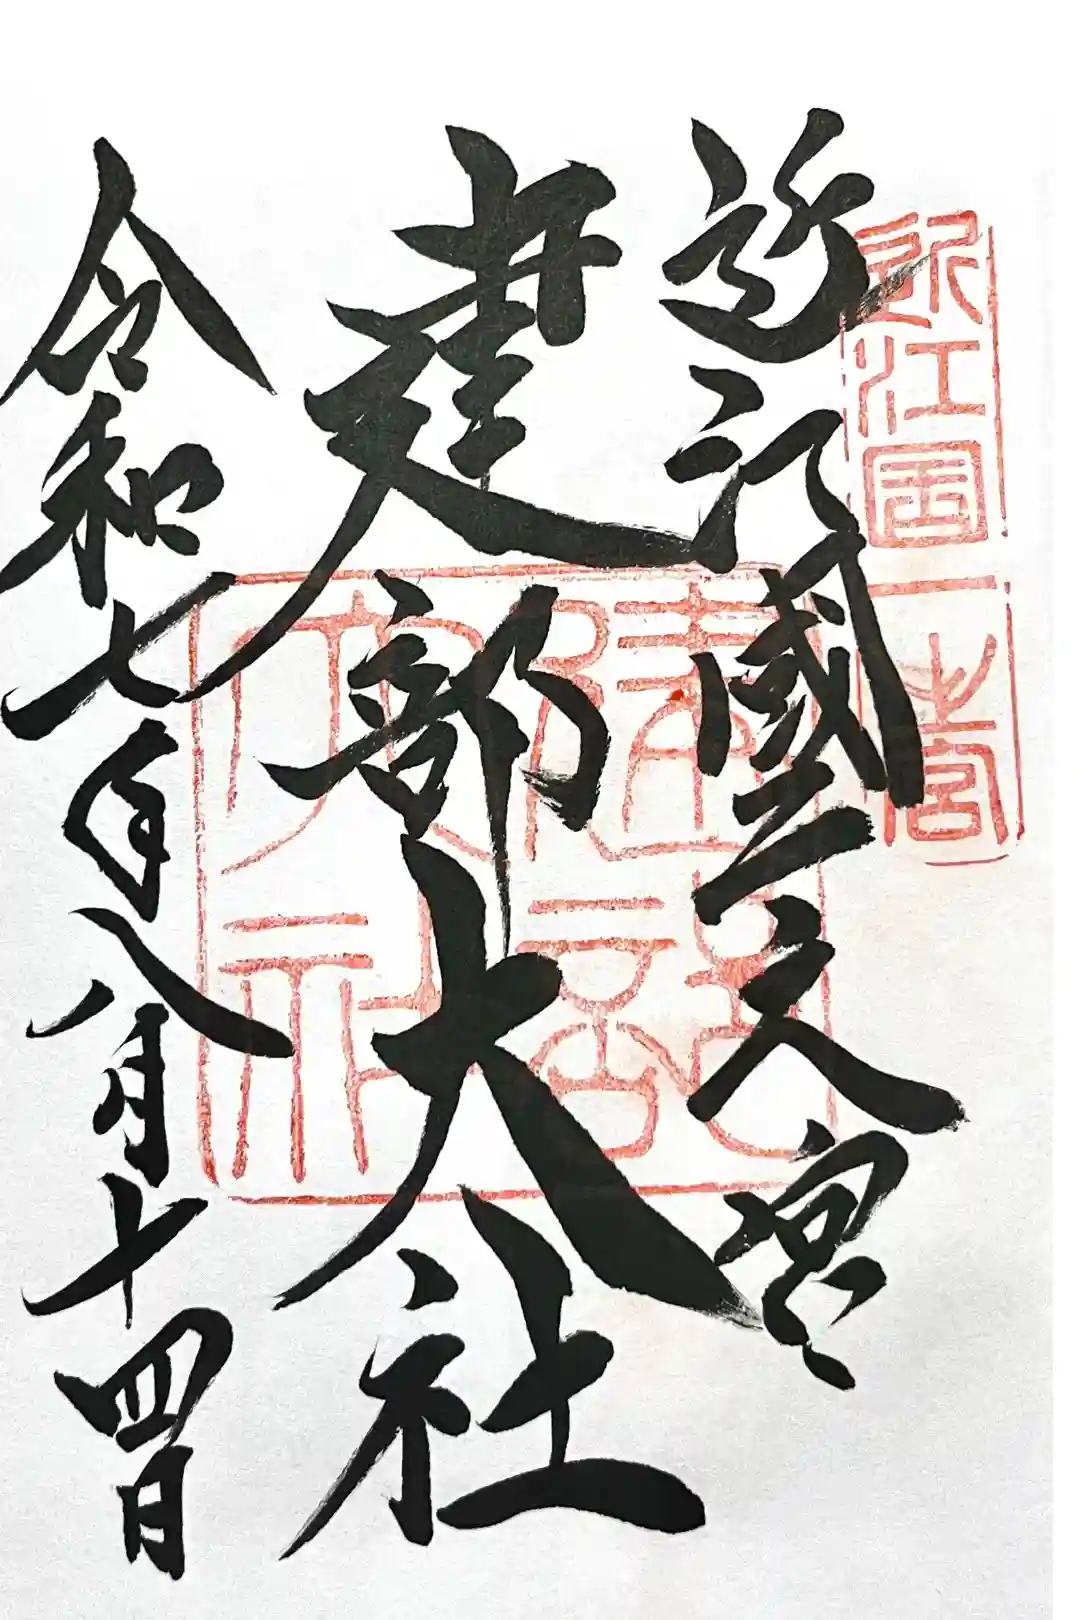 近江國一之宮
建部大社
令和七年八月十四日
近江国一宮
建部大社